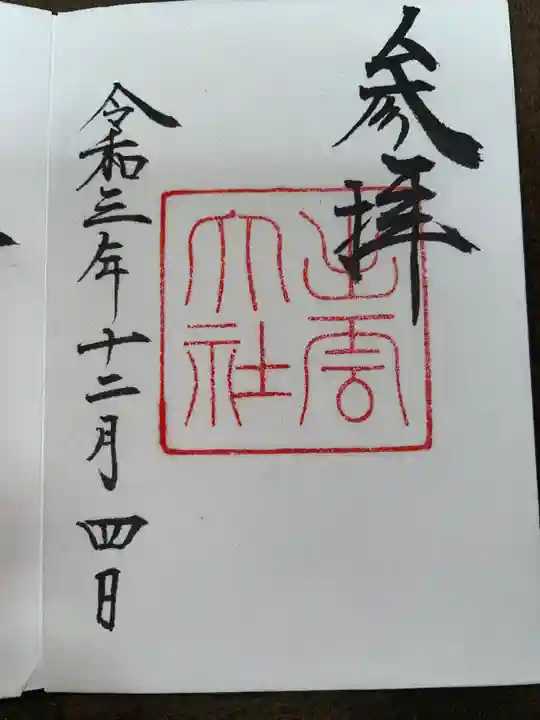 参拝
出雲
大社
令和三年十二月四日